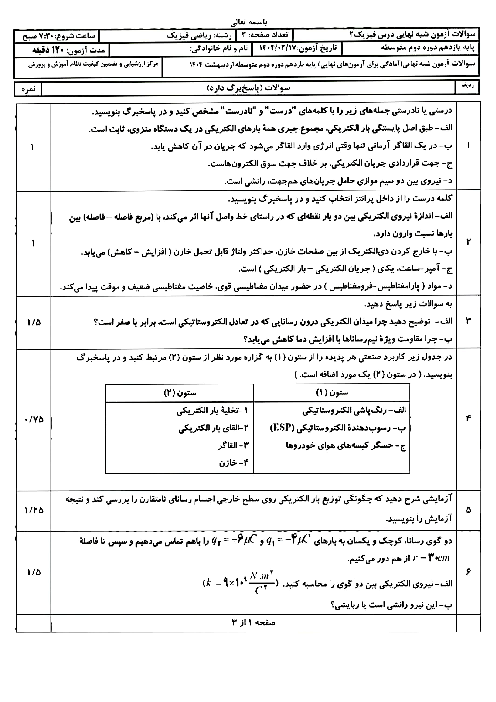 باسمه تعالی
سوالات آزمون شبه نهایی درس فیزیک۲
تعداد صفحه: ۳
رشته: ریاضی فیزیک
ساعت شروع: ۷:۳۰ صبح
پایه یازدهم دوره دوم متوسطه
تاریخ آزمون: ۱۴۰۴/۰۲/۱۷
نام و نام خانوادگی:
مدت آزمون: ۱۲۰ دقیقه
سوالات آزمون شبه نهایی (آمادگی برای آزمون‌های نهایی) پایه یازدهم دوره دوم متوسطه اردیبهشت ۱۴۰۴
مرکز ارزشیابی و تضمین کیفیت نظام آموزش و پرورش
ردیف
سوالات (پاسخ‌برگ دارد)
نمره
۱
درستی یا نادرستی جمله‌های زیر را با کلمه‌های "درست" و "نادرست" مشخص کنید و در پاسخبرگ بنویسید.
الف- طبق اصل پایستگی بار الکتریکی، مجموع جبری همهٔ بارهای الکتریکی در یک دستگاه منزوی، ثابت است.
ب- در یک القاگر آرمانی تنها وقتی انرژی وارد القاگر می‌شود که جریان در آن کاهش یابد.
ج- جهت قراردادی جریان الکتریکی، بر خلاف جهت سوق الکترون‌هاست.
د- نیروی بین دو سیم موازی حامل جریان‌های هم‌جهت، رانشی است.
۱
۲
کلمه درست را از داخل پرانتز انتخاب کنید و در پاسخبرگ بنویسید.
الف- اندازهٔ نیروی الکتریکی بین دو بار نقطه‌ای که در راستای خط واصل آنها اثر می‌کند، با (مربع فاصله – فاصله) بین
بارها نسبت وارون دارد.
ب- با خارج کردن دی‌الکتریک از بین صفحات خازن، حداکثر ولتاژ قابل تحمل خازن ( افزایش – کاهش) می‌یابد.
ج- آمپر-ساعت، یکای ( جریان الکتریکی – بار الکتریکی ) است.
د- مواد ( پارامغناطیس-فرومغناطیس ) در حضور میدان مغناطیسی قوی، خاصیت مغناطیسی ضعیف و موقت پیدا می‌کند.
۱
۳
به سوالات زیر پاسخ دهید.
الف- توضیح دهید چرا میدان الکتریکی درون رسانایی که در تعادل الکتروستاتیکی است، برابر با صفر است؟
ب- چرا مقاومت ویژهٔ نیم‌رساناها با افزایش دما کاهش می‌یابد؟
۱/۵
۴
در جدول زیر کاربرد صنعتی هر پدیده را از ستون (۱) به گزاره مورد نظر از ستون (۲) مرتبط کنید و در پاسخبرگ
بنویسید. ( در ستون (۲) یک مورد اضافه است. )
ستون (۱)
ستون (۲)
الف- رنگ‌پاشی الکتروستاتیکی
۱- تخلیهٔ بار الکتریکی
ب- رسوب‌دهندهٔ الکتروستاتیکی (ESP)
۲-القای بار الکتریکی
ج- حسگر کیسه‌های هوای خودروها
۳- القاگر
۴- خازن
۰/۷۵
۵
آزمایشی شرح دهید که چگونگی توزیع بار الکتریکی روی سطح خارجی اجسام رسانای نامتقارن را بررسی کند و نتیجه
آزمایش را بنویسید.
۱/۲۵
۶
دو گوی رسانا، کوچک و یکسان به بارهای q₁ = -۴μC و q₂ = -۶μC را باهم تماس می‌دهیم و سپس تا فاصلهٔ
r = ۳۰cm از هم دور می‌کنیم.
الف- نیروی الکتریکی بین دو گوی را محاسبه کنید. (k = ۹×۱۰⁹ N.m²/C²)
ب- این نیرو رانشی است یا ربایشی؟
۱/۵
صفحه ۱ از ۳